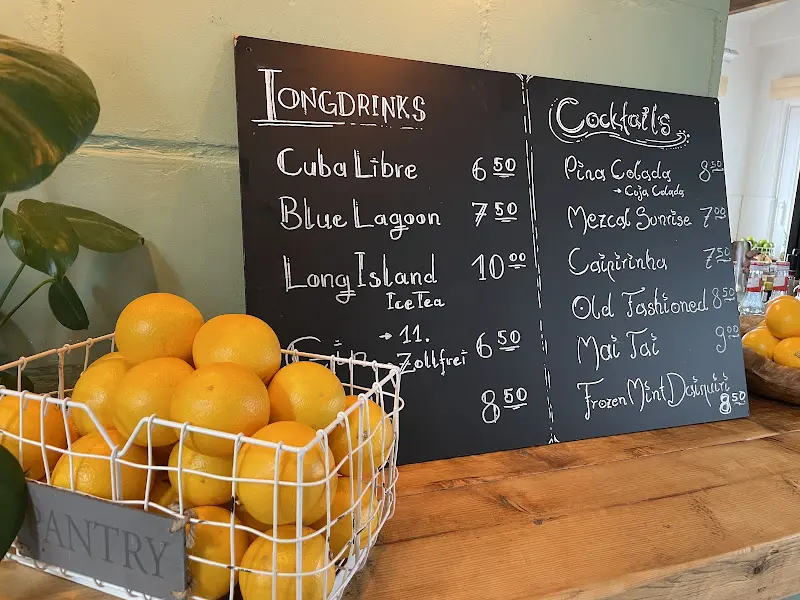 LONGDRINKS
Cuba Libre 6 50
Blue Lagoon 7 50
Long Island 10 00
Ice Tea
→ 11.
Zollfrei 6 50
8 50
Cocktails
Pina Colada 8 50
→ Coja Colada
Mezcal Sunrise 7 00
Caipirinha 7 50
Old Fashioned 8 50
Mai Tai 9 00
Frozen Mint Daiquiri
8 50
PANTRY